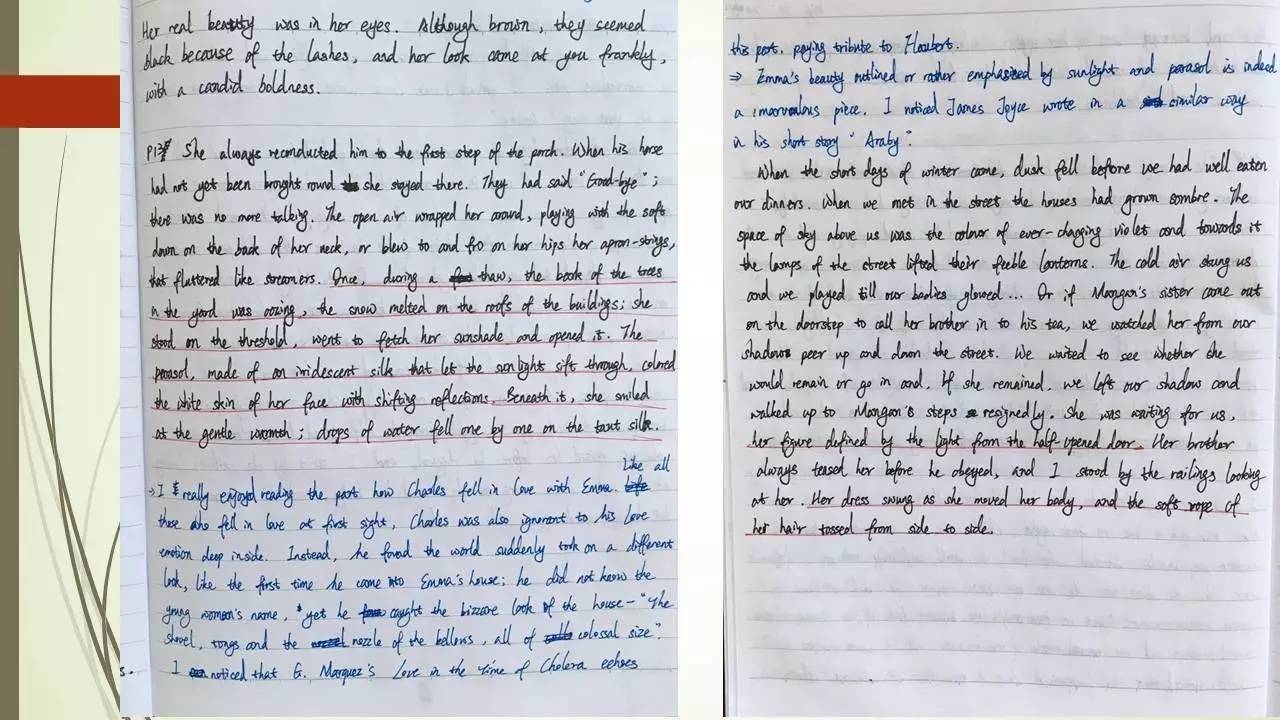 Her real beauty was in her eyes. Although brown, they seemed
black because of the lashes, and her look came at you frankly,
with a candid boldness.
P13 She always reconducted him to the first step of the porch. When his horse
had not yet been brought round she stayed there. They had said "Good-bye";
there was no more talking. The open air wrapped her around, playing with the soft
down on the back of her neck, or blew to and fro on her hips her apron-strings,
that fluttered like streamers. Once, during a thaw, the bark of the trees
in the yard was oozing, the snow melted on the roofs of the buildings; she
stood on the threshold, went to fetch her sunshade and opened it. The
parasol, made of an iridescent silk that let the sunlight sift through, colored
the white skin of her face with shifting reflections. Beneath it, she smiled
at the gentle warmth; drops of water fell one by one on the taut silk.
⇒ I really enjoyed reading the part how Charles fell in love with Emma. Like all
those who fell in love at first sight, Charles was also ignorant to his love
emotion deep inside. Instead, he found the world suddenly took on a different
look, like the first time he came into Emma's house; he did not know the
young woman's name, yet he caught the bizzare look of the house - "The
shovel, tongs and the nozzle of the bellows, all of colossal size".
I noticed that G. Marquez's Love in the time of Cholera echoes
this part, paying tribute to Flaubert.
⇒ Emma's beauty outlined or rather emphasized by sunlight and parasol is indeed
a marvalous piece. I noticed James Joyce wrote in a similar way
in his short story "Araby".
When the short days of winter came, dusk fell before we had well eaten
our dinners. When we met in the street the houses had grown sombre. The
space of sky above us was the colour of ever-changing violet and towards it
the lamps of the street lifted their feeble lanterns. The cold air stung us
and we played till our bodies glowed... Or if Mangan's sister came out
on the doorstep to call her brother in to his tea, we watched her from our
shadows peer up and down the street. We waited to see whether she
would remain or go in and, if she remained, we left our shadow and
walked up to Mangan's steps resignedly. She was waiting for us,
her figure defined by the light from the half-opened door. Her brother
always teased her before he obeyed, and I stood by the railings looking
at her. Her dress swung as she moved her body, and the soft rope of
her hair tossed from side to side.